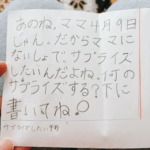 あのね、ママ4月9日
じゃん。だからママに
ないしょで、サプライズ
したいんだよね、何の
サプライズする?下に
書いてね。
サプライズしたい予約